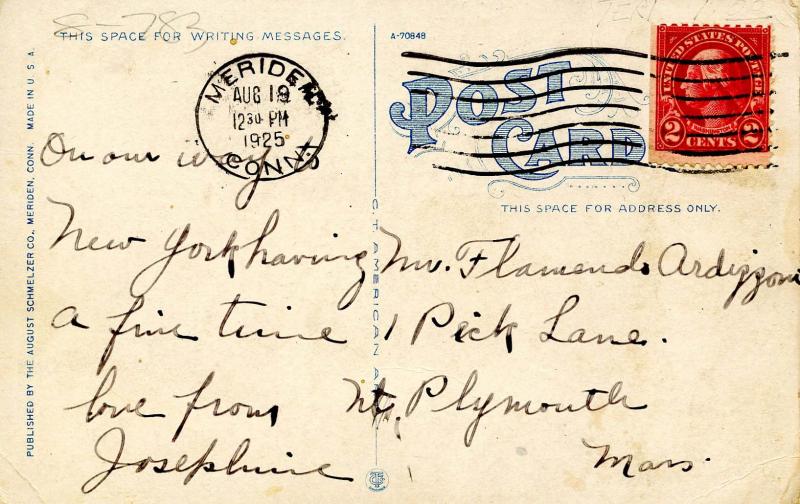 8-783
THIS SPACE FOR WRITING MESSAGES.
A-70848
POST
CARD
UNITED STATES POSTAGE
2 CENTS 2
MERIDEN
AUG 19
12 30 PM
1925
CONN.
THIS SPACE FOR ADDRESS ONLY.
On our way to
New York having
a fine time
love from
Josephine
Mr. Flamendo Ardizzoni
1 Peck Lane.
Nt. Plymouth
Mass.
C. T. AMERICAN AR
PUBLISHED BY THE AUGUST SCHMELZER CO., MERIDEN, CONN. MADE IN U. S. A.